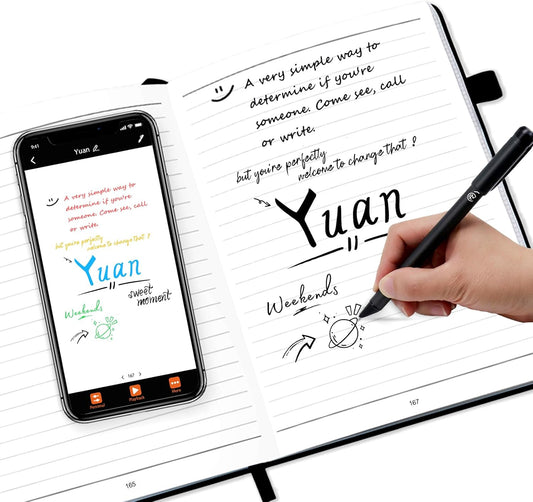 9:41
Yuan
A very simple way to
determine if you're
someone. Come see, call
or write.
but you're perfectly
welcome to change that ?
Yuan
sweet
moment
Weekends
< 167 >
Personal
Playback
More
165
A very simple way to
determine if you're
someone. Come see, call
or write.
but you're perfectly
welcome to change that ?
Yuan
Weekends
167